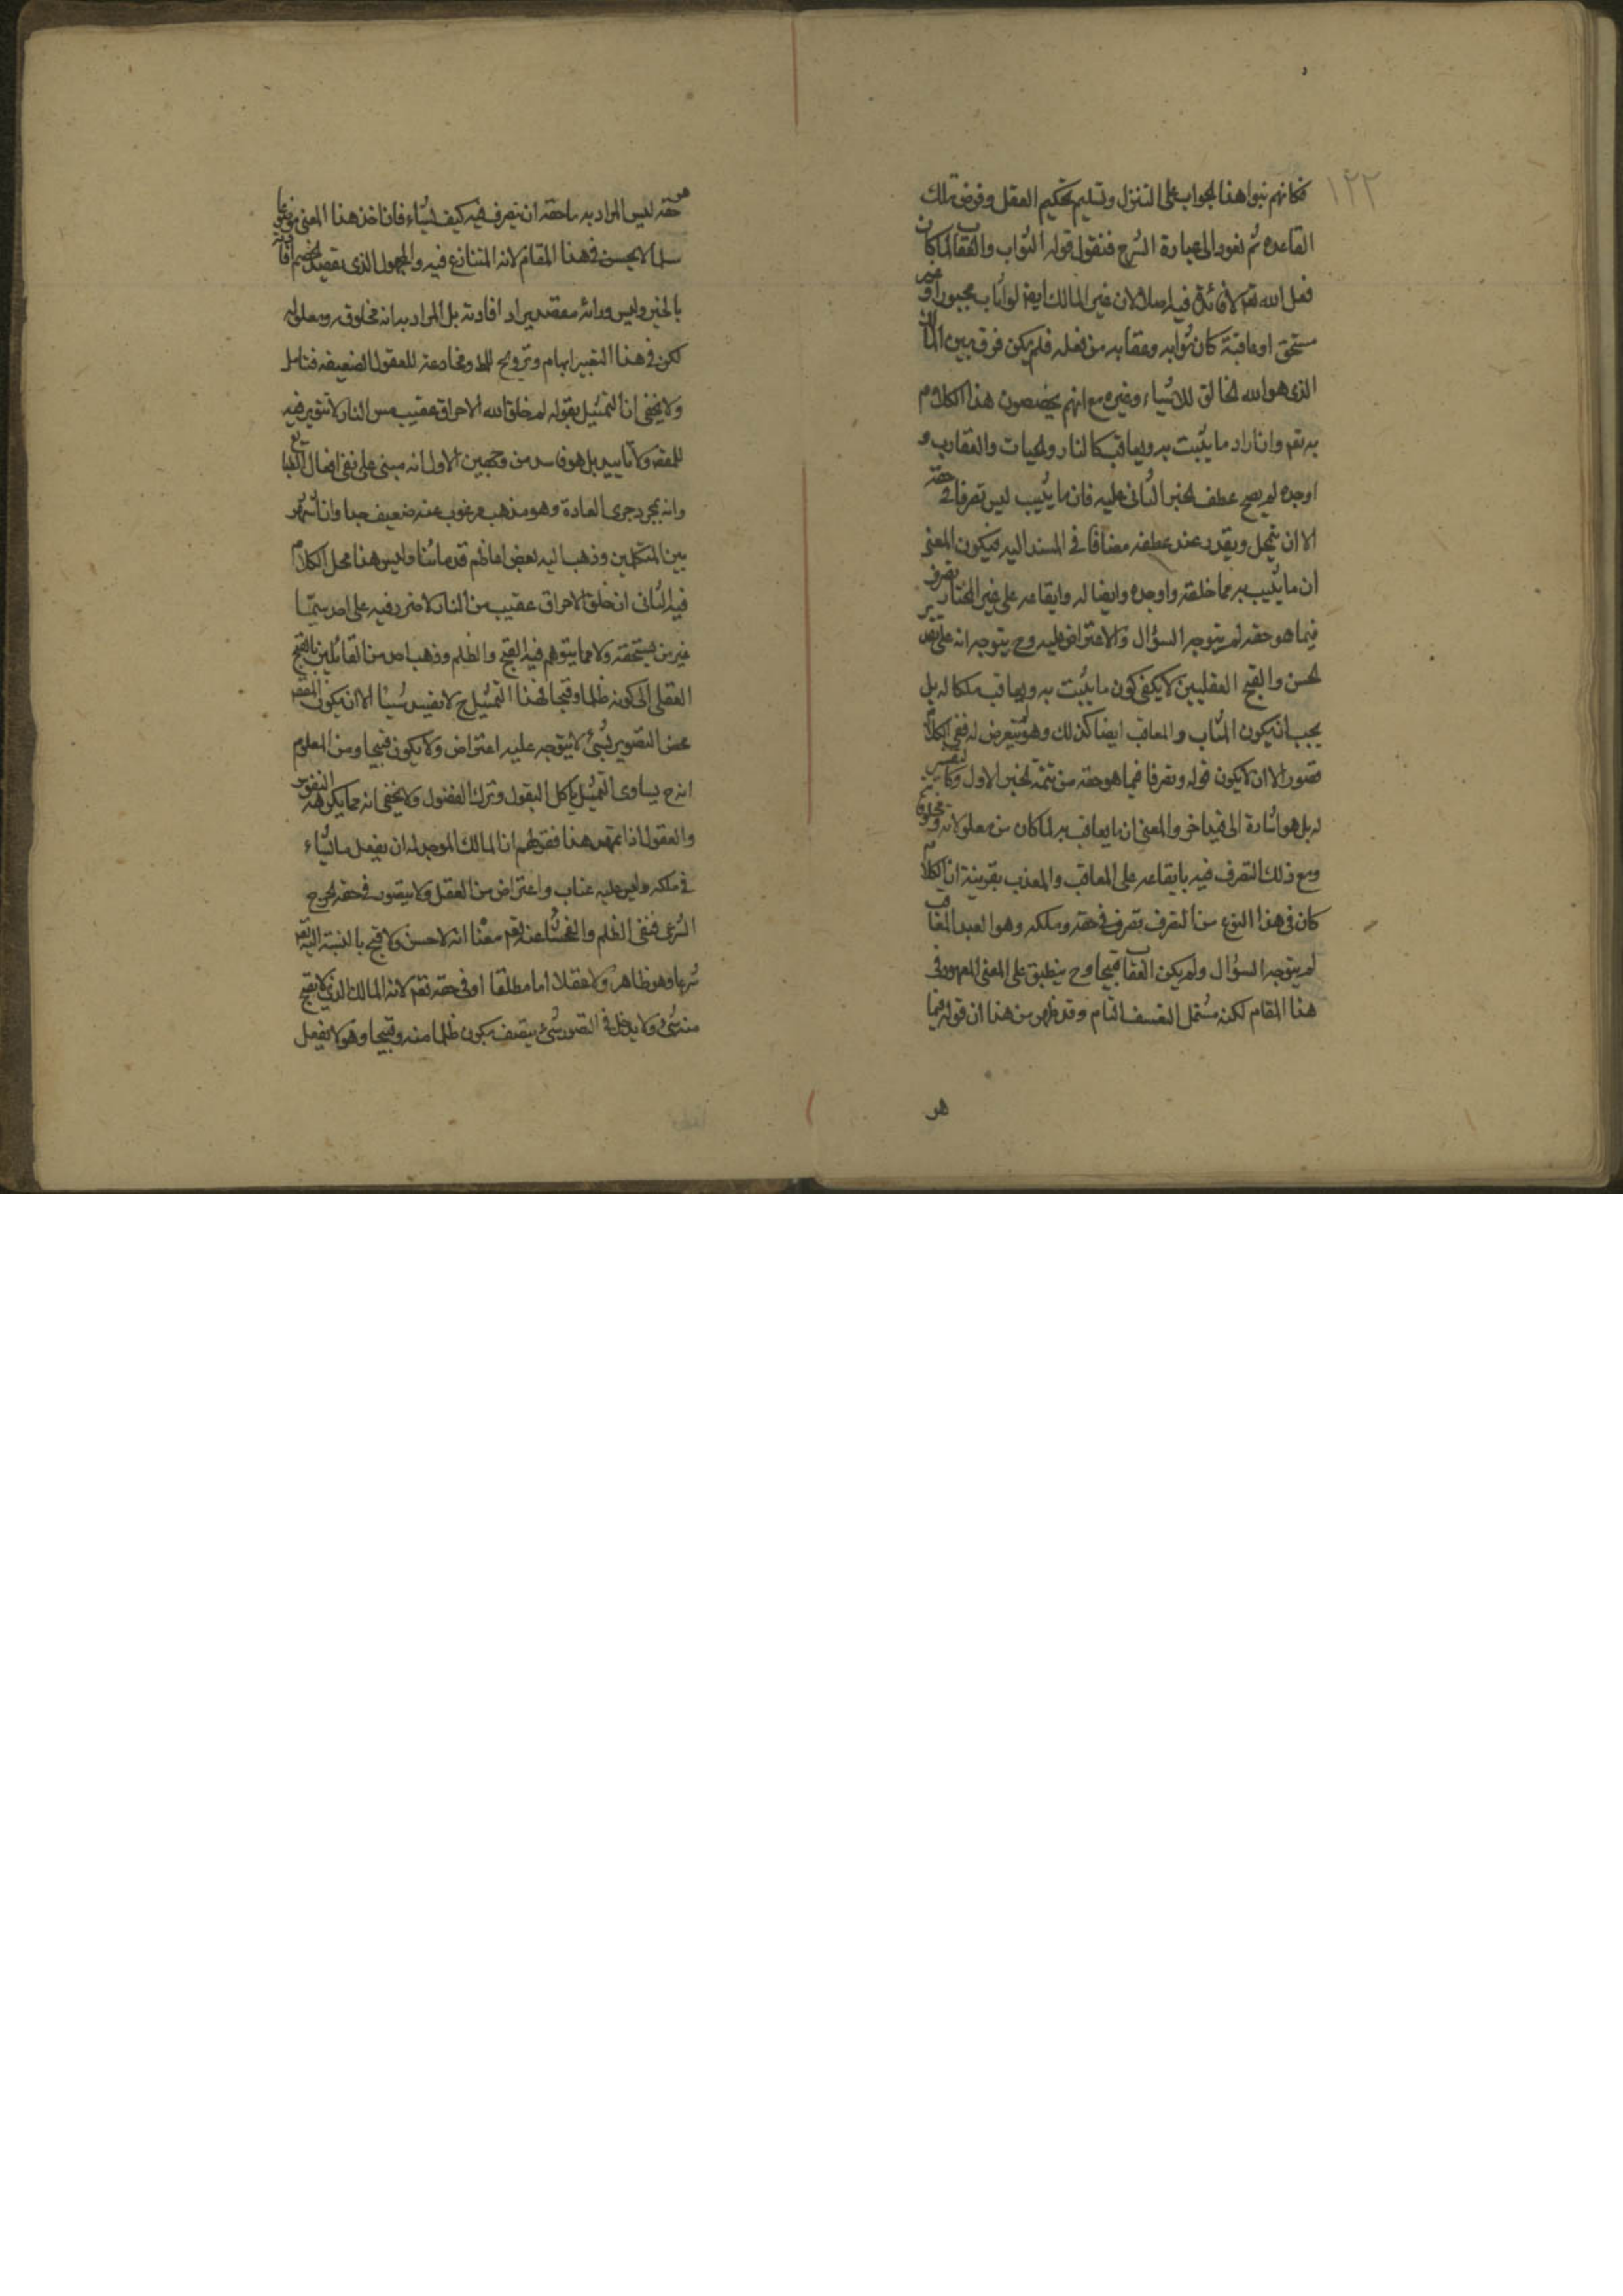 ١٢٢
فكانهم بنوا هذا الجواب على التنزل وتسليم تحكيم العقل وفرض تلك
القاعدة ثم نعود الى عبارة الشرح فنقول قوله الثواب والعقاب لما كان
فعل الله تعم لا فائدة فيه اصلا لان غير المالك ايضا لو اثاب مجبورا او غير
مستحق او عاقبة كان ثوابه وعقابه من فعله فلم يكن فرق بين المالك
الذى هو الله الخالق للاشياء وغيره مع انهم يخصصون هذا الكلام
به تعم وان اراد ما يثبت به ويعاقب كالنار والحيات والعقارب و
اوجده لم يصح عطف الخبر الثانى عليه فان ما يثيب ليس تصرفا فى حقه
الا ان يتمحل ويقدر عند عطفه مضافا فى المسند اليه فيكون المعنى
ان ما يثيب به مما خلقه واوجده وايضا له وايقاعه على غير المختار تصرف
فيما هو حقه لم يتوجه السؤال والاعتراض عليه وح يتوجه انه على تقدير
الحسن والقبح العقليين لا يكفى كون ما يثبت به ويعاقب ملكا له بل
يجب ان يكون المثاب والمعاقب ايضا كذلك وهو لم يتعرض له ففى الكلام
قصور الا ان لا يكون قوله وتصرفا فيما هو حقه من تتمة الخبر الاول وكا لتفسير
له بل هو اشارة الى قيد اخر والمعنى ان ما يعاقب به لما كان من معلولاته ومخلوقاته
ومع ذلك التصرف فيه بايقاعه على المعاقب والمعذب بقرينة ان الكلام
كان فى هذا النوع من التصرف تصرف فى حقه وملكه وهو العبد المعاقب
لم يتوجه السؤال ولم يكن العقاب قبيحا وح ينطبق على المعنى المعهود فى
هذا المقام لكنه مشتمل التعسف التام وقد ظهر من هذا ان قوله فيما
هو
هو حقه ليس المراد به ما حقه ان يتصرف فيه كيف يشاء فان اخذ هذا المعنى
سلما لا يحسن فى هذا المقام لانه المتنازع فيه والمجهول الذى يقصد الخصم افادته
بالخبر وليس ورائه مقصد يراد افادته بل المراد به انه مخلوقه ومعلوله
لكن فى هذا التعبير ابهام وترويح للمط ومخادعة للعقول الضعيفه فتامل
ولا يخفى ان التمثيل بقوله لم خلق الله الاحراق عقيب مس النار لا تنوير فيه
للمقصد ولا تاييد بل هو فاسد من وجهين الاول انه مبنى على نفى افعال الطبايع
وانه بمجرد جرى العادة وهو مذهب مرغوب عنه ضعيف جدا وان اشتهر
بين المتكلمين وذهب اليه بعض اعاظم قدمائنا وليس هذا محل الكلام
فيه الثانى ان خلق الاحراق عقيب مس النار لا ضرر فيه على احد سيما
غير من يستحقه ولا مما يتوهم فيه القبح والظلم وذهب احد من القائلين بالقبح
العقلى الى كونه ظلما وقبحا فهذا التمثيل ح لا يفيد شيئا الا ان يكون المقصد
محض التصوير بشئ لا يتوجه عليه اعتراض ولا يكون قبيحا ومن المعلوم
انه ح يساوى التمثيل باكل البقول وترك الفضول ولا يخفى انه مما يكرهه النفوس
والعقول اذا تمهد هذا فقولهم ان المالك الموجد له ان يفعل ما يشاء
فى ملكه وليس عليه عتاب واعتراض من العقل ولا يتصور فى حقه الحرج
الشرعى فنفى الظلم والفحشاء عنه تعم معناه انه لا حسن ولا قبح بالنسبة اليه تعم
شرعا وهو ظاهر ولا عقلا اما مطلقا او فى حقه تعم لانه المالك الذى لا يقبح
منه شئ ولا يدخل فى التصور شئ يتصف بكون ظلما منه وقبيحا وهو لا يفعل